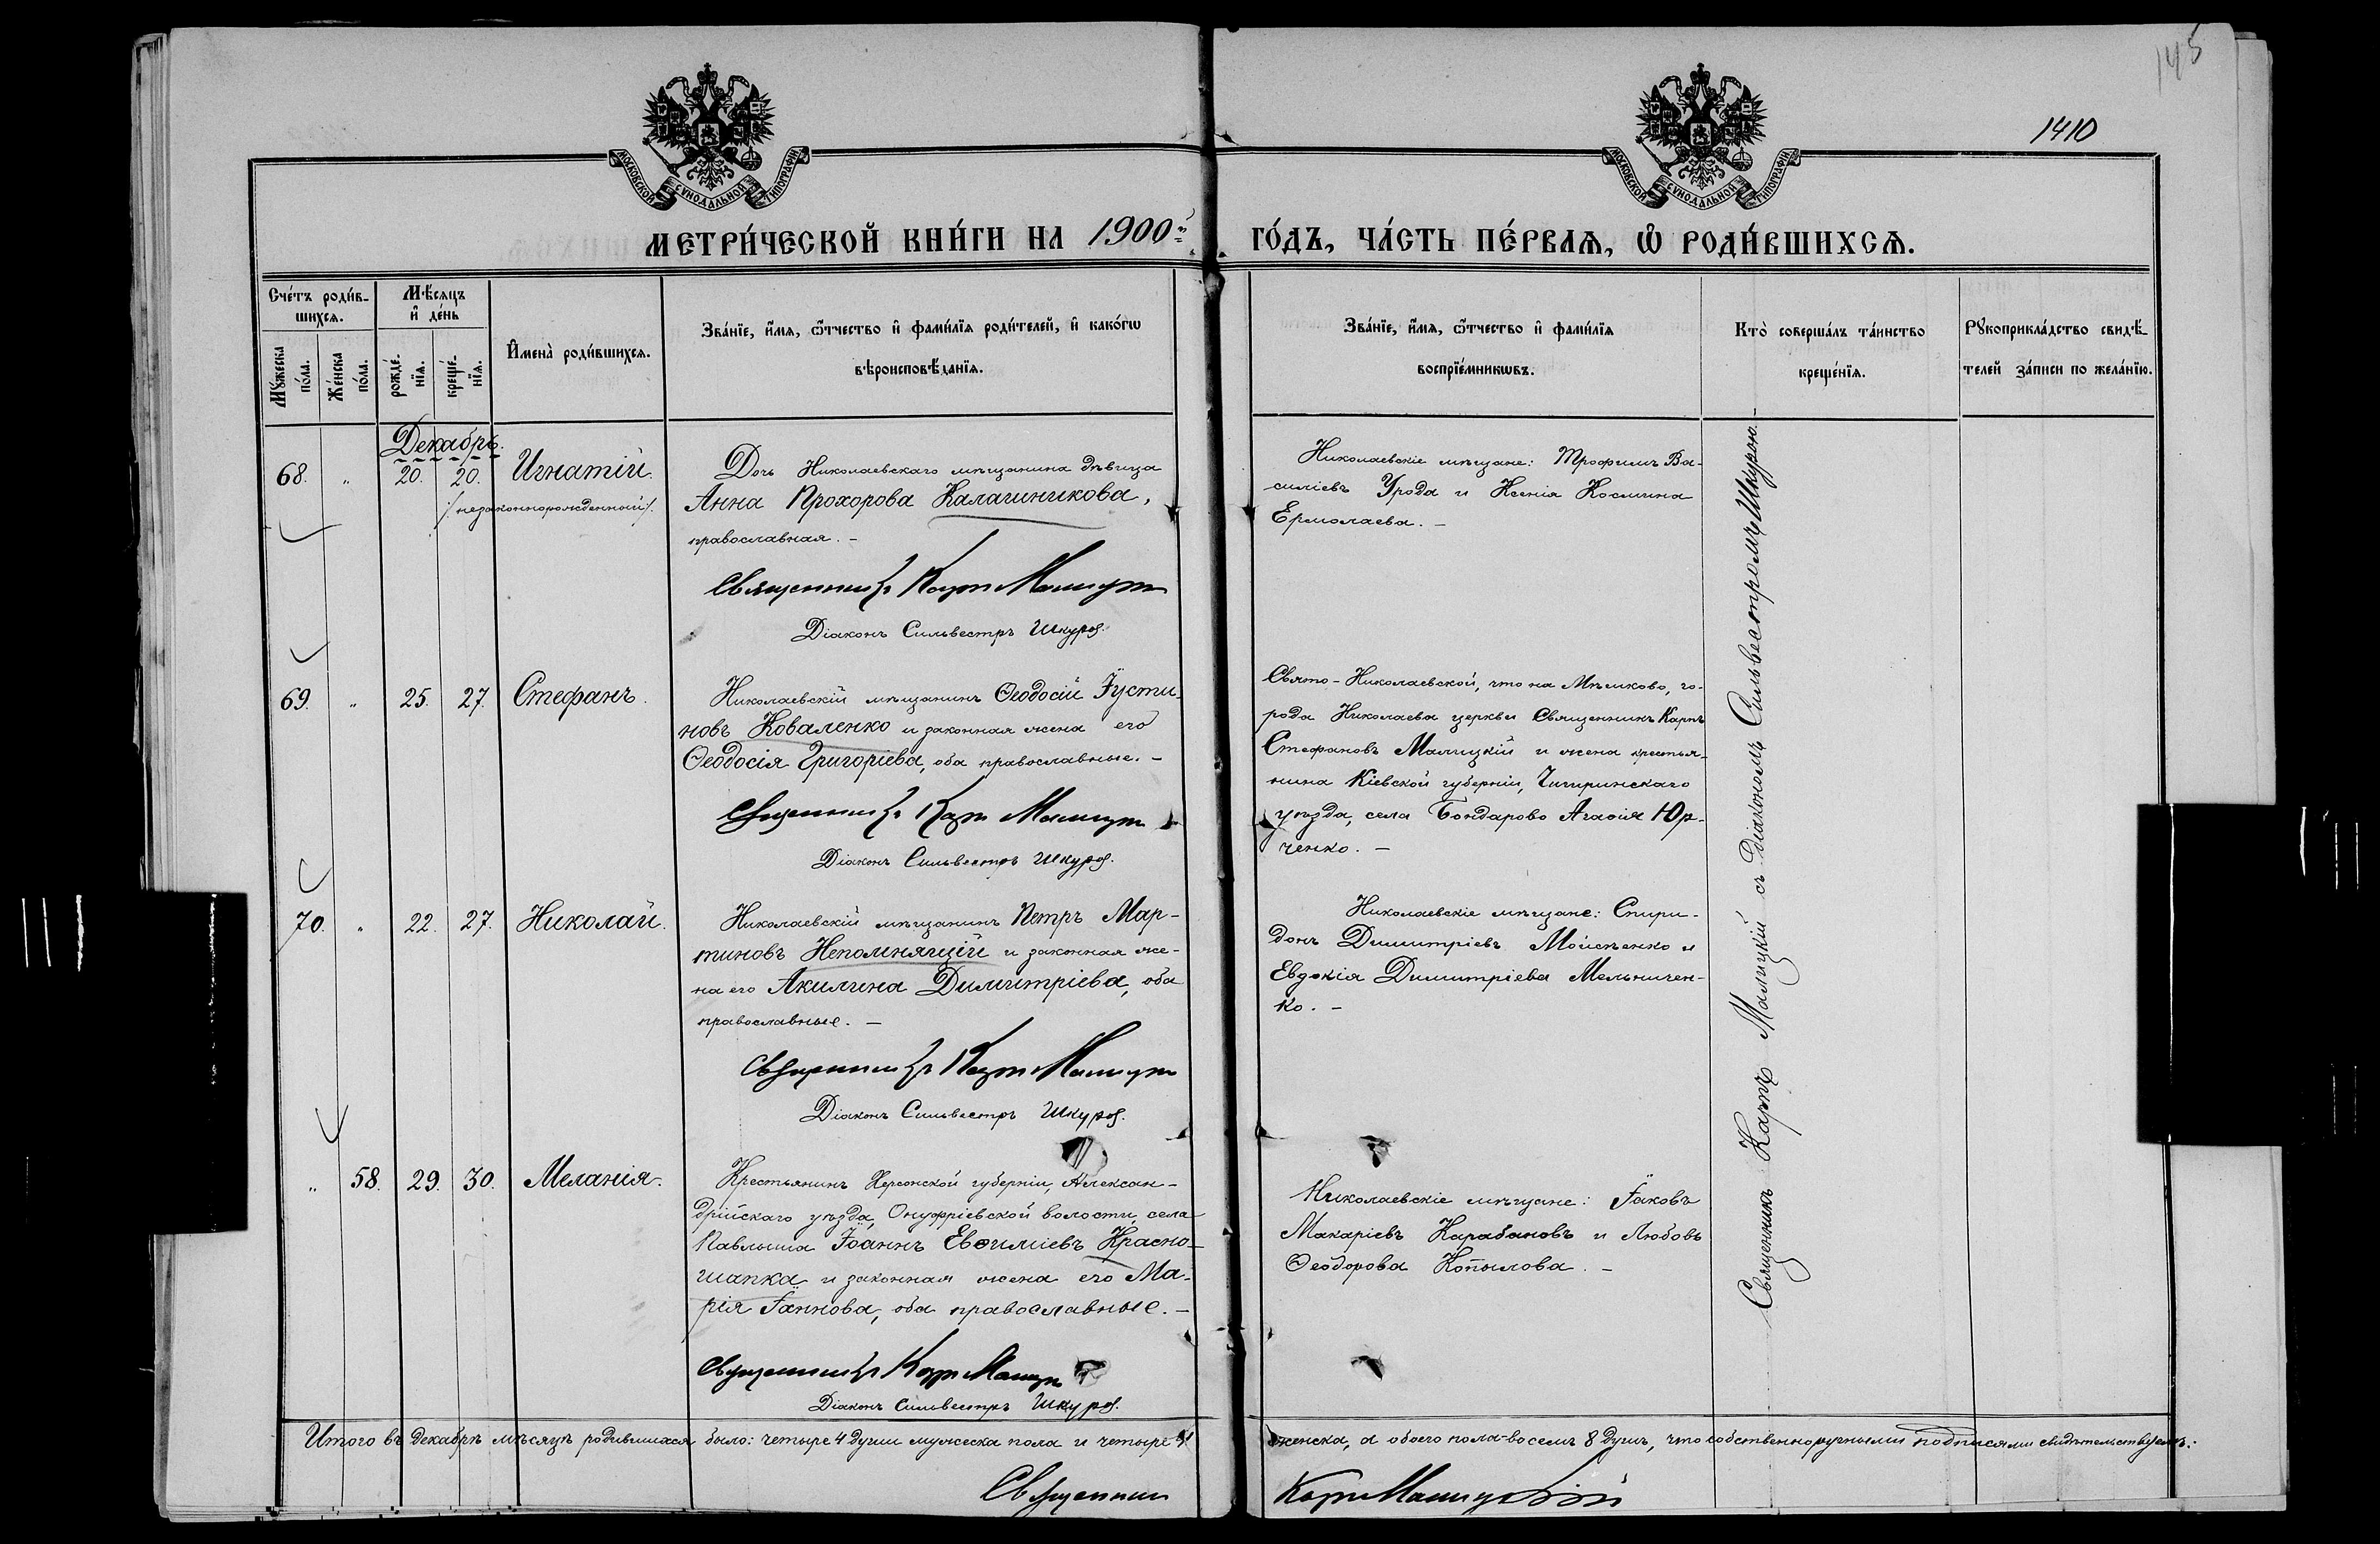 145
1410
МОСКОВСКОЙ СѴНОДАЛЬНОЙ ТИПОГРАФІИ
МОСКОВСКОЙ СѴНОДАЛЬНОЙ ТИПОГРАФІИ
МЕТРИ́ЧЕСКОЙ КНИ́ГИ НА 1900й
ГО́ДЪ, ЧА́СТЬ ПЕ́РВАЯ, Ѡ РОДИ́ВШИХСѦ.
Сче́тъ роди́в-
шихсѧ.
Мꙋжеска по́ла.
Же́нска по́ла.
Мѣ́сѧцъ
и҆ де́нь
рожде́-
нїѧ.
креще́-
нїѧ.
И҆мена̀ роди́вшихсѧ.
Зва́нїе, и҆́мѧ, ѻ҆́тчество и҆ фами́лїѧ роди́телей, и҆ како́гѡ
вѣроисповѣ́данїѧ.
Зва́нїе, и҆́мѧ, ѻ҆́тчество и҆ фами́лїѧ
воспрїе́мникѡвъ.
Кто̀ соверша́лъ та́инство
креще́нїѧ.
Рꙋкоприкла́дство свидѣ́-
телей за́писи по жела́нїю.
Декабрь.
68. " 20. 20. Игнатій.
/незаконнорожденный/.
Дочь Николаевскаго мѣщанина дѣвица
Анна Прохорова Калашникова,
православная. -
Священникъ Карпъ Малицкій
Діаконъ Сильвестръ Шкура.
Николаевскіе мѣщане: Трофимъ Ва-
силіевъ Урода и Ксенія Космина
Ермолаева. -
69. " 25. 27. Стефанъ.
Николаевскій мѣщанинъ Ѳеодосій Іусти-
новъ Коваленко и законная жена его
Ѳеодосія Григоріева, оба православные. -
Священникъ Карпъ Малицкій
Діаконъ Сильвестръ Шкура.
Свято-Николаевской, что на Мѣшково, го-
рода Николаева церкви Священникъ Карпъ
Стефановъ Малицкій и жена крестья-
нина Кіевской губерніи, Чигиринскаго
уѣзда, села Бондарово Агаѳія Юр-
ченко. -
70. " 22. 27. Николай.
Николаевскій мѣщанинъ Петръ Мар-
тиновъ Непомнящій и законная же-
на его Акилина Димитріева, оба
православные. -
Священникъ Карпъ Малицкій
Діаконъ Сильвестръ Шкура.
Николаевскіе мѣщане: Спири-
донъ Димитріевъ Мойсѣенко и
Евдокія Димитріева Мельничен-
ко. -
" 58. 29. 30. Меланія.
Крестьянинъ Херсонской губерніи, Алексан-
дрійскаго уѣзда, Онуфріевской волости, села
Павлыша Іоаннъ Евѳиміевъ Красно-
шапка и законная жена его Ма-
рія Іаннова, оба православные. -
Священникъ Карпъ Малицкій
Діаконъ Сильвестръ Шкура.
Николаевскіе мѣщане: Іаковъ
Макаріевъ Карабановъ и Любовь
Ѳеодорова Копылова. -
Священникъ Карпъ Малицкій съ Діакономъ Сильвестромъ Шкурою.
Итого въ декабрѣ мѣсяцѣ родившихся было: четыре 4 души мужеска пола и четыре 4
женска, а обоего пола-восемь 8 душъ, что собственноручными подписями свидѣтельствуемъ:
Священникъ
Карпъ Малицкій